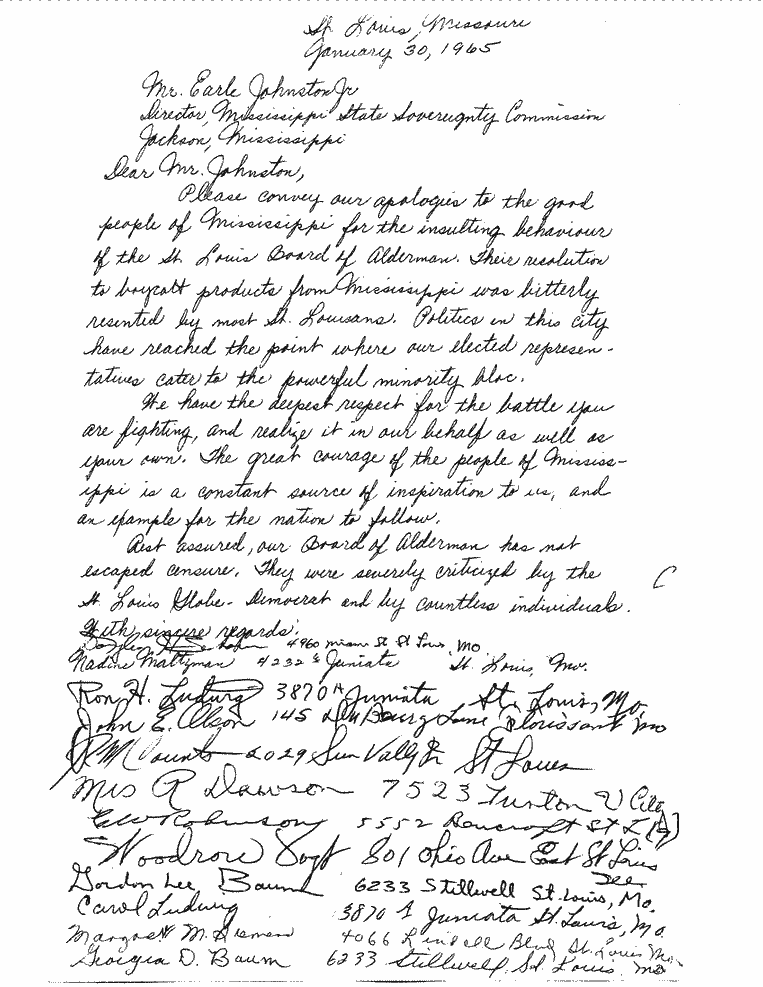 St. Louis, Missouri
January 30, 1965
Mr. Earle Johnston Jr
Director, Mississippi State Sovereignty Commission
Jackson, Mississippi
Dear Mr. Johnston,
Please convey our apologies to the good
people of Mississippi for the insulting behaviour
of the St. Louis Board of Alderman. Their resolution
to boycott products from Mississippi was bitterly
resented by most St. Louisans. Politics in this city
have reached the point where our elected represen-
tatives cater to the powerful minority bloc.
We have the deepest respect for the battle you
are fighting, and realize it in our behalf as well as
your own. The great courage of the people of Mississ-
ippi is a constant source of inspiration to us, and
an example for the nation to follow.
Rest assured, our Board of Alderman has not
escaped censure. They were severely criticized by the
St. Louis Globe-Democrat and by countless individuals.
With sincere regards,
4960 St St Louis, Mo.
Nadine Maltzman 4232 Juniata St. Louis, Mo.
Ron H. Ludwig 3870A Juniata St. Louis, Mo.
John E. Olson 145 Lane Florissant Mo
2029 Sun Valley Dr St Louis
Mrs R Dawson 7523 U City
Robinson 5552 Bancroft St L
Woodrow Vogt 801 Ohio Ave East St Louis
Gordon Lee Baum 6233 Stillwell St. Louis, Mo.
Carol Ludwig 3870 A Juniata St. Louis, Mo.
Margaret M. 4066 Lindell Blvd St. Louis Mo.
Georgia D. Baum 6233 Stillwell, St. Louis, Mo